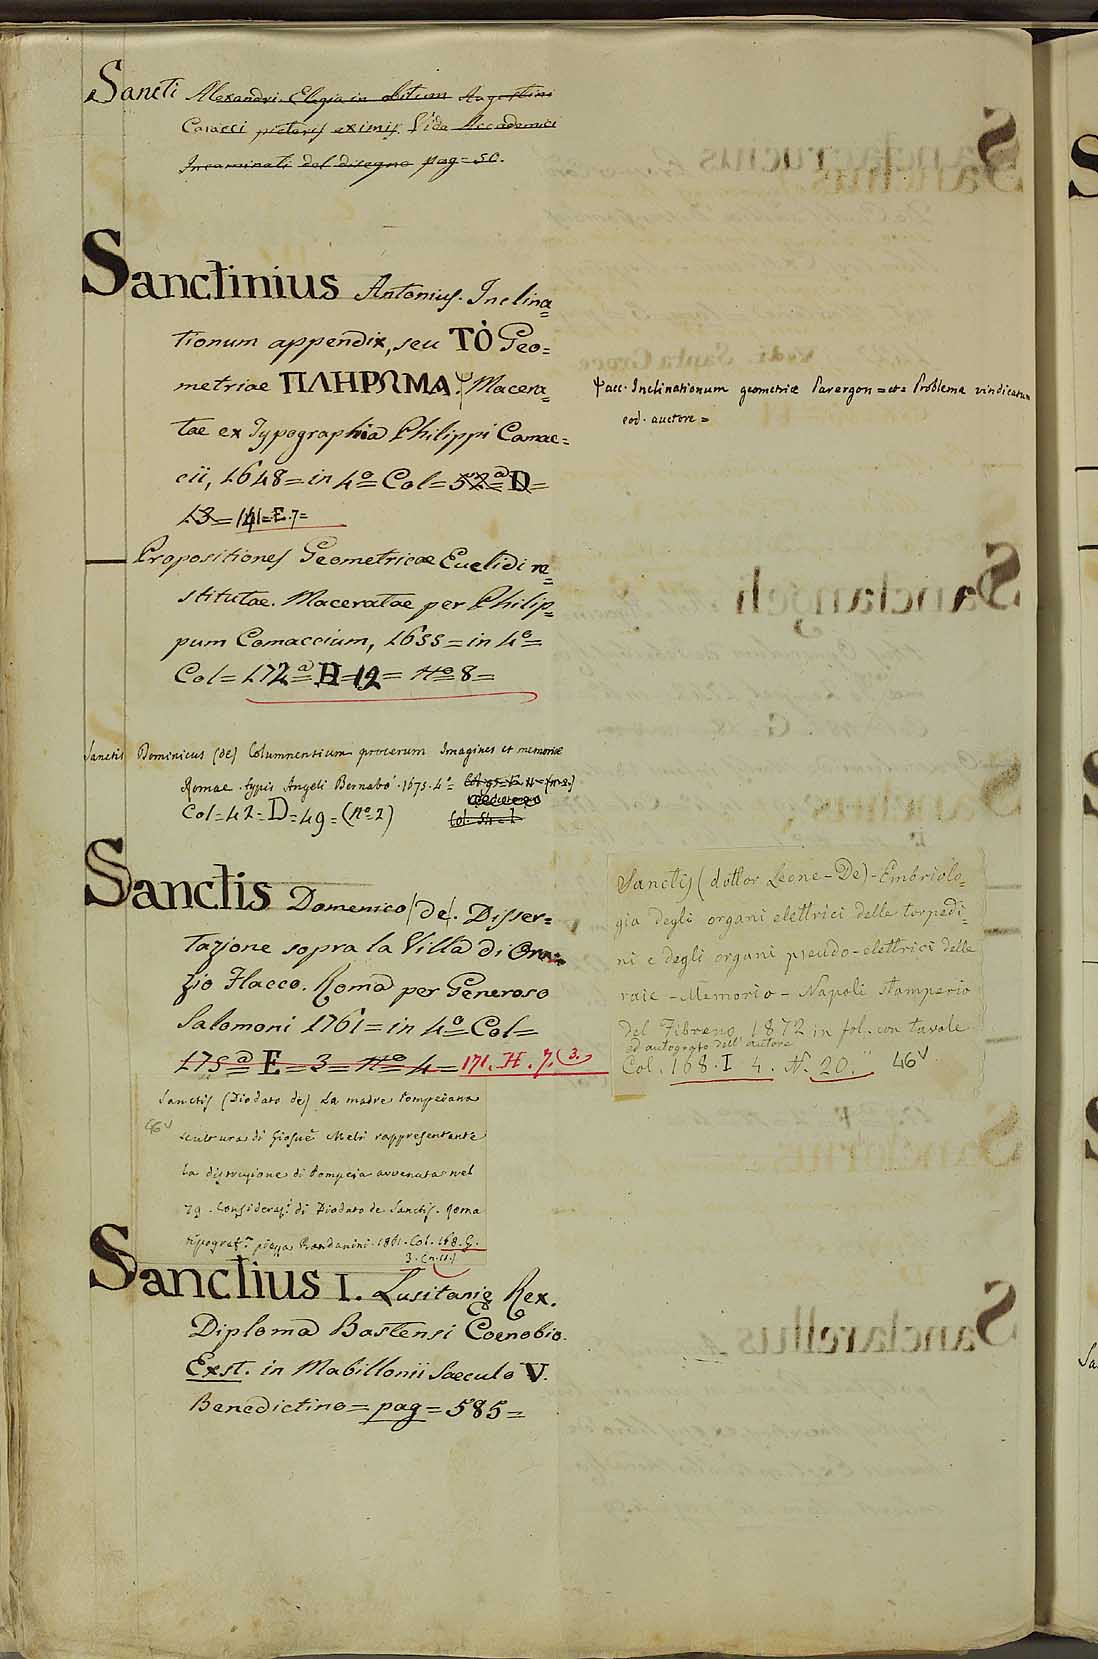 Sancti Alexandri. Elegia in obitum Augustini
Caracci pictoris eximij. Vide Accademici
Incaminati del disegno pag = 50.
Sanctinius Antonius. Inclina=
tionum appendix, seu TÒ Geo=
metriae ΠΛΗΡΩΜΑ. Macera=
tae ex Typographia Philippi Camac=
cii, 1648 = in 4º = Col = 52ª = D =
13 = 141 = E. 7 =
acc. Inclinationum geometriæ Parergon = et = Problema vindicatum
eod. auctore =
Propositiones Geometricae Euclidi re=
stitutae. Maceratae per Philip=
pum Camaccium, 1655 = in 4º =
Col = 172ª = H = 12 = Nº 8 =
Sanctis Dominicus (de) Columnensium procerum Imagines et memoriæ
Romæ. typis Angeli Bernabò. 1675. 4º =
Col = 42 = D = 49 = (nº = 2)
Sanctis Domenico (de). Disser=
tazione sopra la Villa di Ora=
zio Flacco. Roma per Generoso
Salomoni 1761 = in 4º = Col =
175ª = E = 3 = Nº 4 = 171. H. 7. (3.)
Sanctis (dottor Leone - De) - Embriolo=
gia degli organi elettrici delle torpedi=
ni e degli organi pseudo-elettrici delle
raie - Memoria - Napoli Stamperia
del Fibreno 1872 in fol. con tavole
ed autografo dell'autore
Col. 168. I 4. N. 20. 46v
Sanctis (Diodato de) La madre Pompeiana
46v
scultura di Giosuè Meli rappresentante
la distruzione di Pompeia avvenuta nel
79. Consideraz.i di Diodato de Sanctis. Roma
tipograf.a piazza Randanini. 1861. Col. 168. G.
3. (n. 11.)
Sanctius I. Lusitanię Rex.
Diploma Bastensi Coenobio.
Exst. in Mabillonii Saeculo V.
Benedictino = pag = 585 =